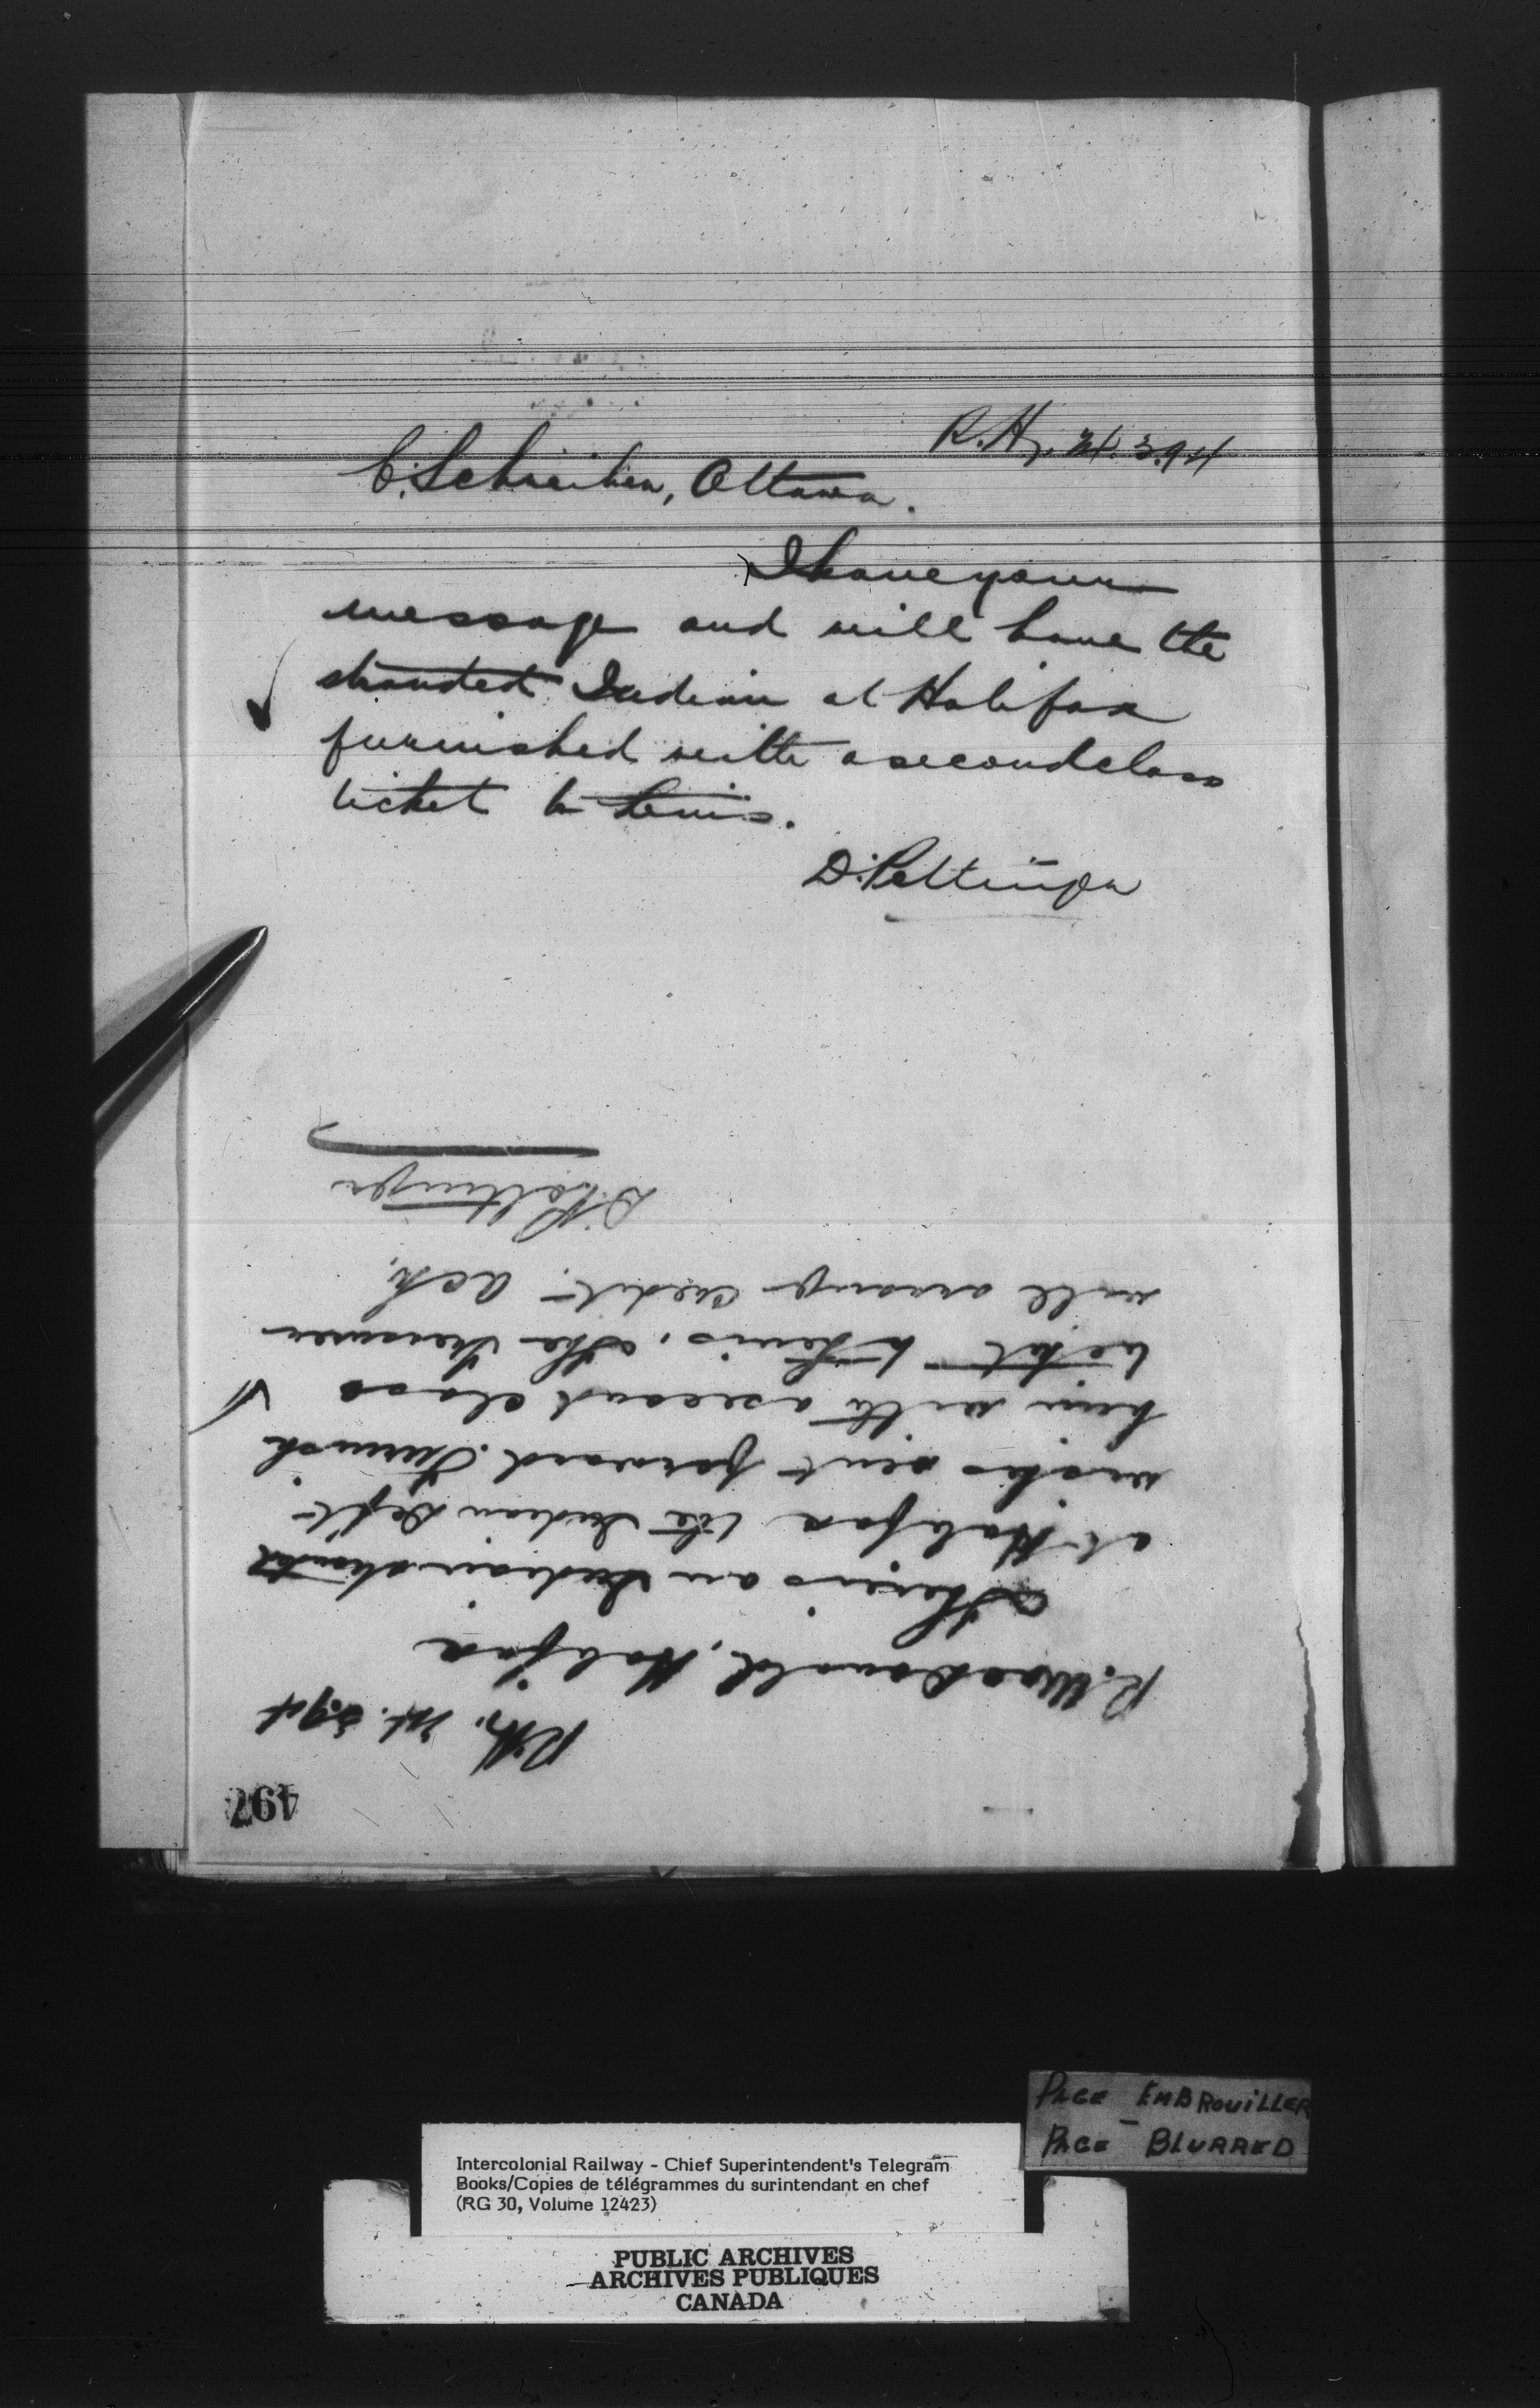 R.Hy. 21.3.94
C. Schreiber, Ottawa.
I have your
message and will have the
stranded Indian at Halifax
furnished with a second class
ticket to Levis.
D. Pottinger
497
R.Hy. 21.3.94
R. MacDonald, Halifax
There is an Indian stranded
at Halifax the Indian Dept.
wishes sent forward. Furnish
him with a second class
ticket to Levis. The Treasurer
will arrange credit. Ack.
D. Pottinger
PAGE EMBROUILLER
PAGE BLURRED
Intercolonial Railway - Chief Superintendent's Telegram
Books/Copies de télégrammes du surintendant en chef
(RG 30, Volume 12423)
PUBLIC ARCHIVES
ARCHIVES PUBLIQUES
CANADA